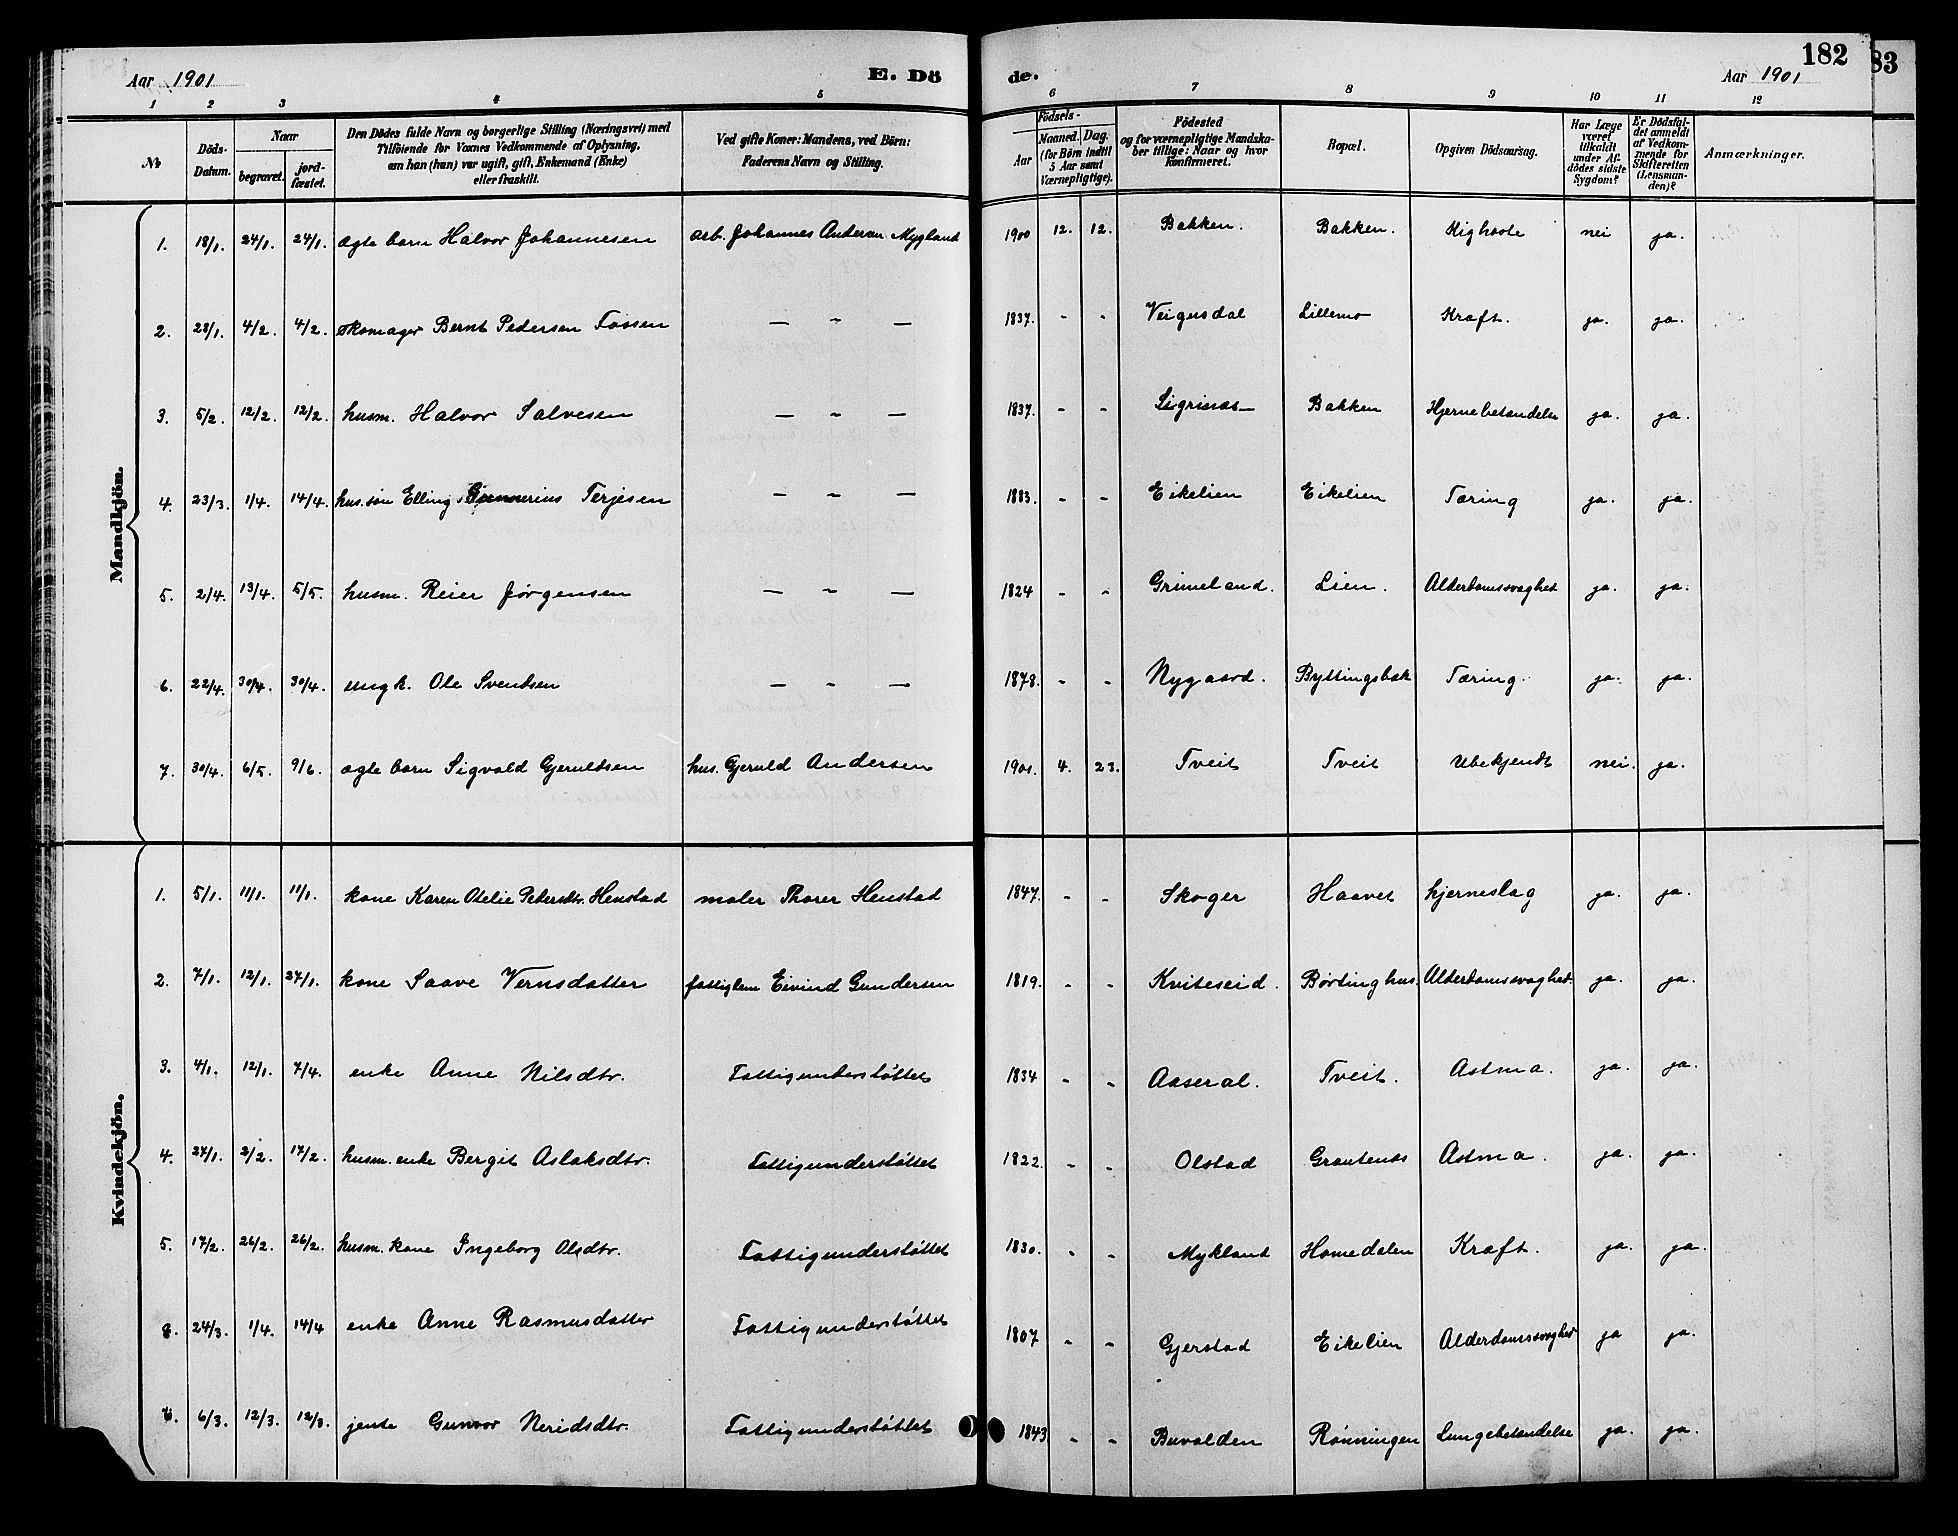 182
83
Aar 1901 E. Dö
de. Aar 1901
1 2 3 4 5
6 7 8 9 10 11 12
No Döds-Datum. Naar begravet. jord-fæstet. Den Dödes fulde Navn og borgerlige Stilling (Næringsvei) med Tilföiende for Voxnes Vedkommende af Oplysning, om han (hun) var ugift, gift, Enkemand (Enke) eller fraskilt. Ved gifte Koner: Mandens, ved Börn: Faderens Navn og Stilling.
Födsels- Aar Maaned. Dag. (for Börn indtil 5 Aar samt Værnepligtige). Födested og for værnepligtige Mandskaber tillige: Naar og hvor Konfirmeret. Bopæl. Opgiven Dödsaarsag. Har Læge været tilkaldt under Afdödes sidste Sygdom? Er Dödsfaldet anmeldt af Vedkommende for Skifteretten (Lensmanden)? Anmærkninger.
Mandkjön.
1. 18/1. 24/1. 24/1. ægte barn Halvor Johannesen arb. Johannes Andersen Mygland 1900 12. 12. Bakken. Bakken. Kighoste nei ja.
2. 28/1. 4/2. 4/2. skomager Bernt Pedersen Fossen — " — 1837. - - Veigusdal Lillemo Kræft. ja. ja.
3. 5/2. 12/2. 12/2. husm. Halvor Salvesen — " — 1837. - - Bakken Hjernebetændelse ja. ja.
4. 23/3. 1/4. 14/4. hus.søn Elling Gunnerius Terjesen — " — 1883. - - Eikelien Eikelien Tæring ja. ja.
5. 2/4. 13/4. 5/5. husm. Reier Jørgensen — " — 1824 - - Grimeland. Lien. Alderdomssvaghed ja. ja.
6. 22/4. 30/4. 30/4. ungk. Ole Svendsen — " — 1878. - - Nygaard. Byttingsbak Tæring. ja. ja.
7. 30/4. 6/5. 9/6. ægte barn Sigvald Gjeruldsen hus. Gjeruld Andersen 1901. 4. 23. Tveit Tveit Ubekjendt nei. ja.
Kvindekjön.
1. 5/1. 11/1. 11/1. kone Karen Otelie Pedersdtr. Henstad maler Thorer Henstad 1847. - - Skoger Haavet hjerneslag ja. ja.
2. 7/1. 12/1. 27/1. kone Saave Vernsdatter fattiglem Eivind Gundersen 1819. - - Kviteseid. Børtinghus. Alderdomssvaghed. ja. ja.
3. 4/1. 12/1. 7/4. enke Anne Nilsdtr. Fattigunderstøttet 1834 - - Aaseral. Tveit. Astma. ja. ja.
4. 27/1. 2/2. 17/2. husm. enke Bergit Aslaksdtr. Fattigunderstøttet 1822. - - Olstad Astma. ja. ja.
5. 17/2. 26/2. 26/2. husm. kone Ingeborg Olsdtr. Fattigunderstøttet 1830. - - Mykland Homedalen Kræft. ja. ja.
24/3. 1/4. 14/4 enke Anne Rasmusdatter Fattigunderstøttet 1807 - - Gjerstad Eikelien Alderdomssvaghed ja ja.
6/3. 12/3. 12/3. jente Gunvor Neridsdtr. Fattigunderstøttet 1843 - - Buvolden Rønningen Lungebetændelse ja. ja.